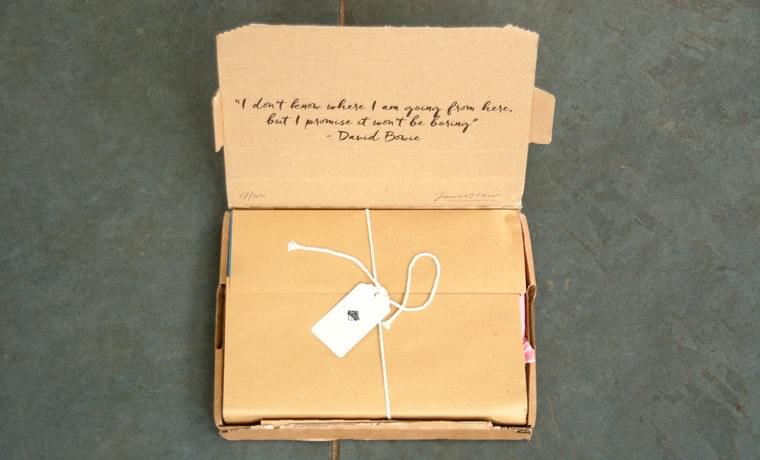 "I don't know where I am going from here,
but I promise it won't be boring"
- David Bowie